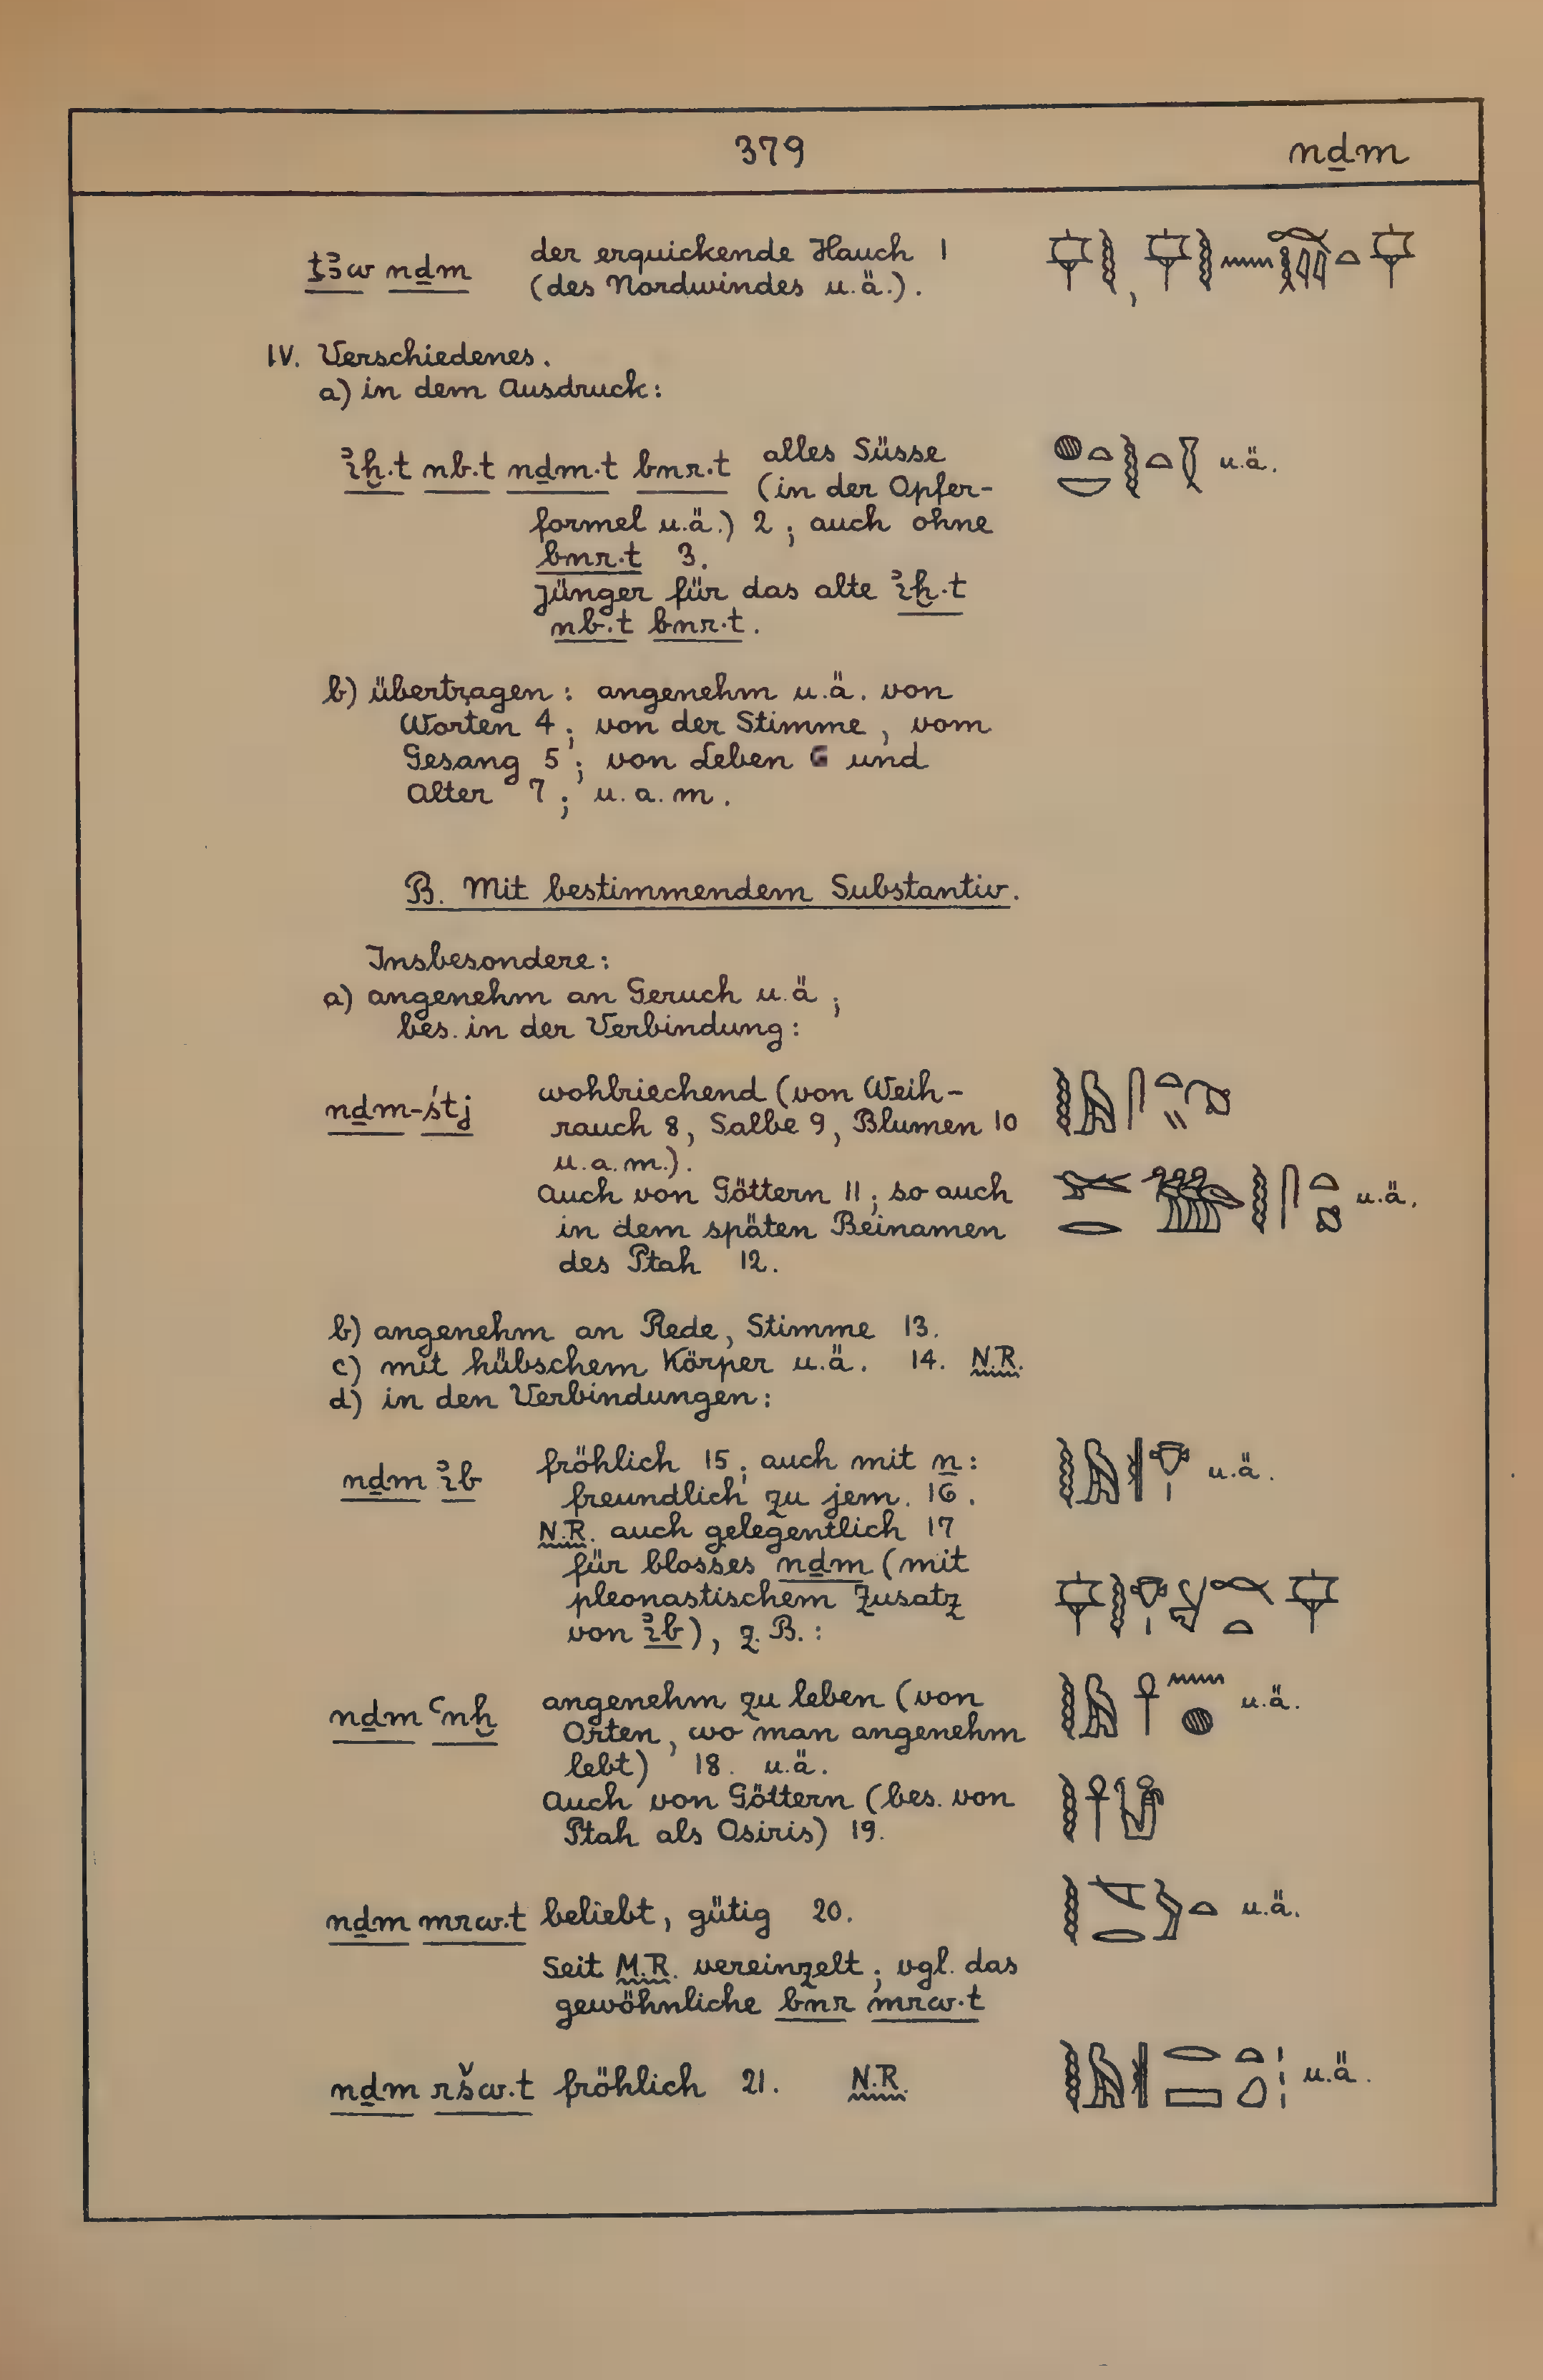 379 nḏm
ṯꜣw nḏm der erquickende Hauch 1
(des Nordwindes u.ä.).
IV. Verschiedenes.
a) in dem Ausdruck:
ꞽḫ.t nb.t nḏm.t bnr.t alles Süsse u.ä.
(in der Opfer-
formel u.ä.) 2; auch ohne
bnr.t 3.
Jünger für das alte ꞽḫ.t
nb.t bnr.t.
b) übertragen: angenehm u.ä. von
Worten 4; von der Stimme, vom
Gesang 5; von Leben 6 und
Alter 7; u.a.m.
B. Mit bestimmendem Substantiv.
Insbesondere:
a) angenehm an Geruch u.ä;
bes. in der Verbindung:
nḏm-śtj wohlriechend (von Weih-
rauch 8, Salbe 9, Blumen 10
u.a.m.).
Auch von Göttern 11; so auch u.ä.
in dem späten Beinamen
des Ptah 12.
b) angenehm an Rede, Stimme 13.
c) mit hübschem Körper u.ä. 14. N.R.
d) in den Verbindungen:
nḏm ꞽb fröhlich 15; auch mit n: u.ä.
freundlich zu jem. 16.
N.R. auch gelegentlich 17
für blosses nḏm (mit
pleonastischem Zusatz
von ꞽb), z.B.:
nḏm ꜥnḫ angenehm zu leben (von u.ä.
Orten, wo man angenehm
lebt) 18. u.ä.
Auch von Göttern (bes. von
Ptah als Osiris) 19.
nḏm mrw.t beliebt, gütig 20. u.ä.
Seit M.R. vereinzelt; vgl. das
gewöhnliche bnr mrw.t
nḏm ršw.t fröhlich 21. N.R. u.ä.